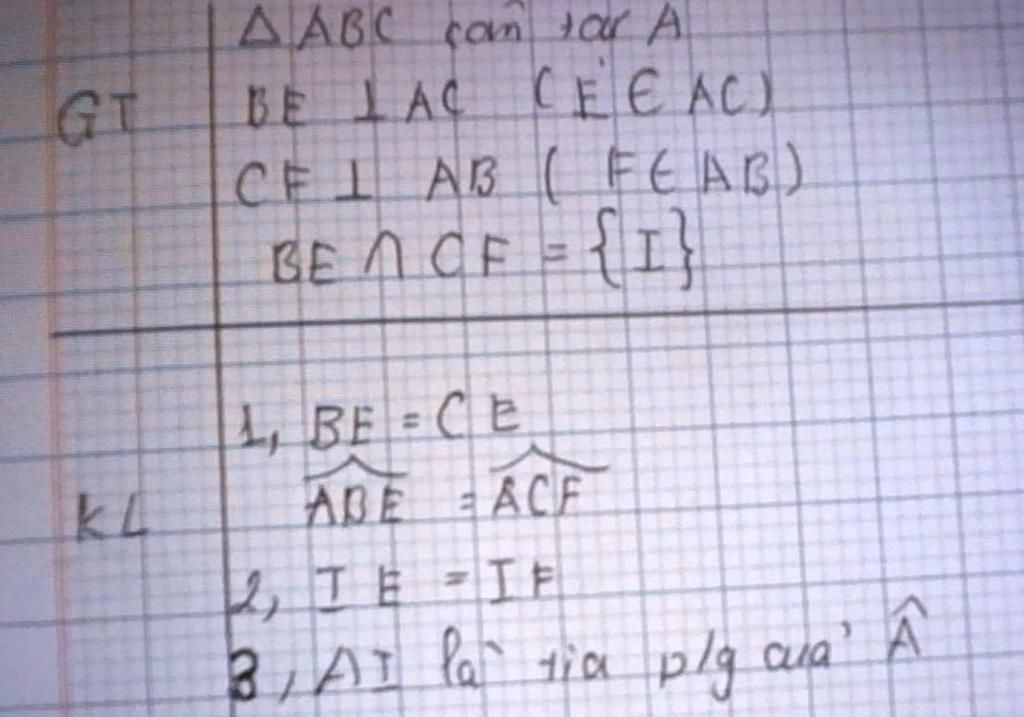 Δ ABC cân tại A
GT BE ⊥ AC ( E ∈ AC)
CF ⊥ AB ( F ∈ AB)
BE ∩ CF = {I}
1, BE = CE
KL \widehat{ABE} = \widehat{ACF}
2, IE = IF
3, AI là tia p/g của Â